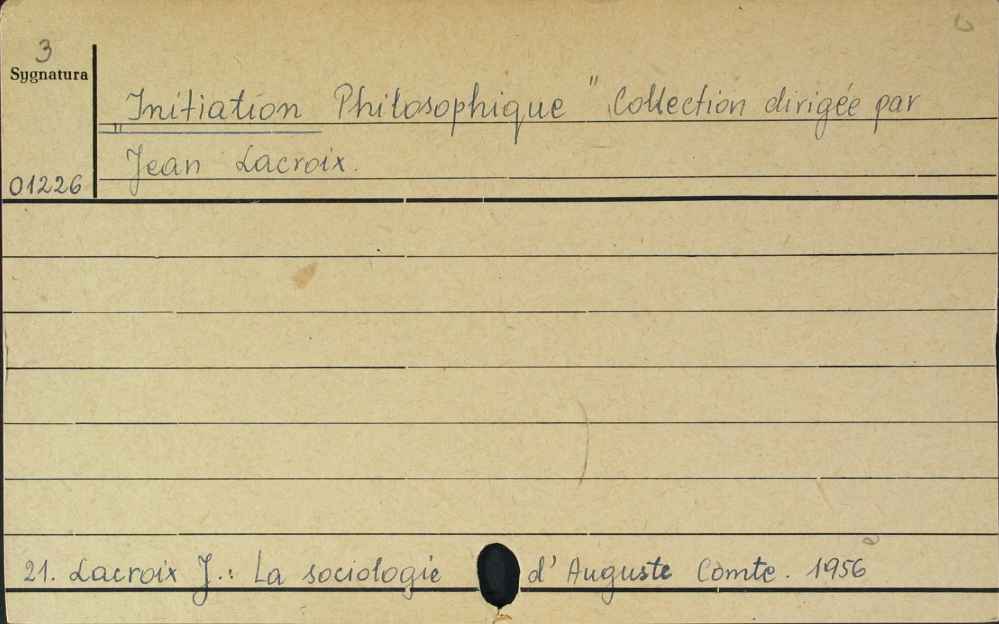 3
Sygnatura
„Initiation Philosophique" Collection dirigée par
Jean Lacroix.
01226
21. Lacroix J.: La sociologie d'Auguste Comte. 1956